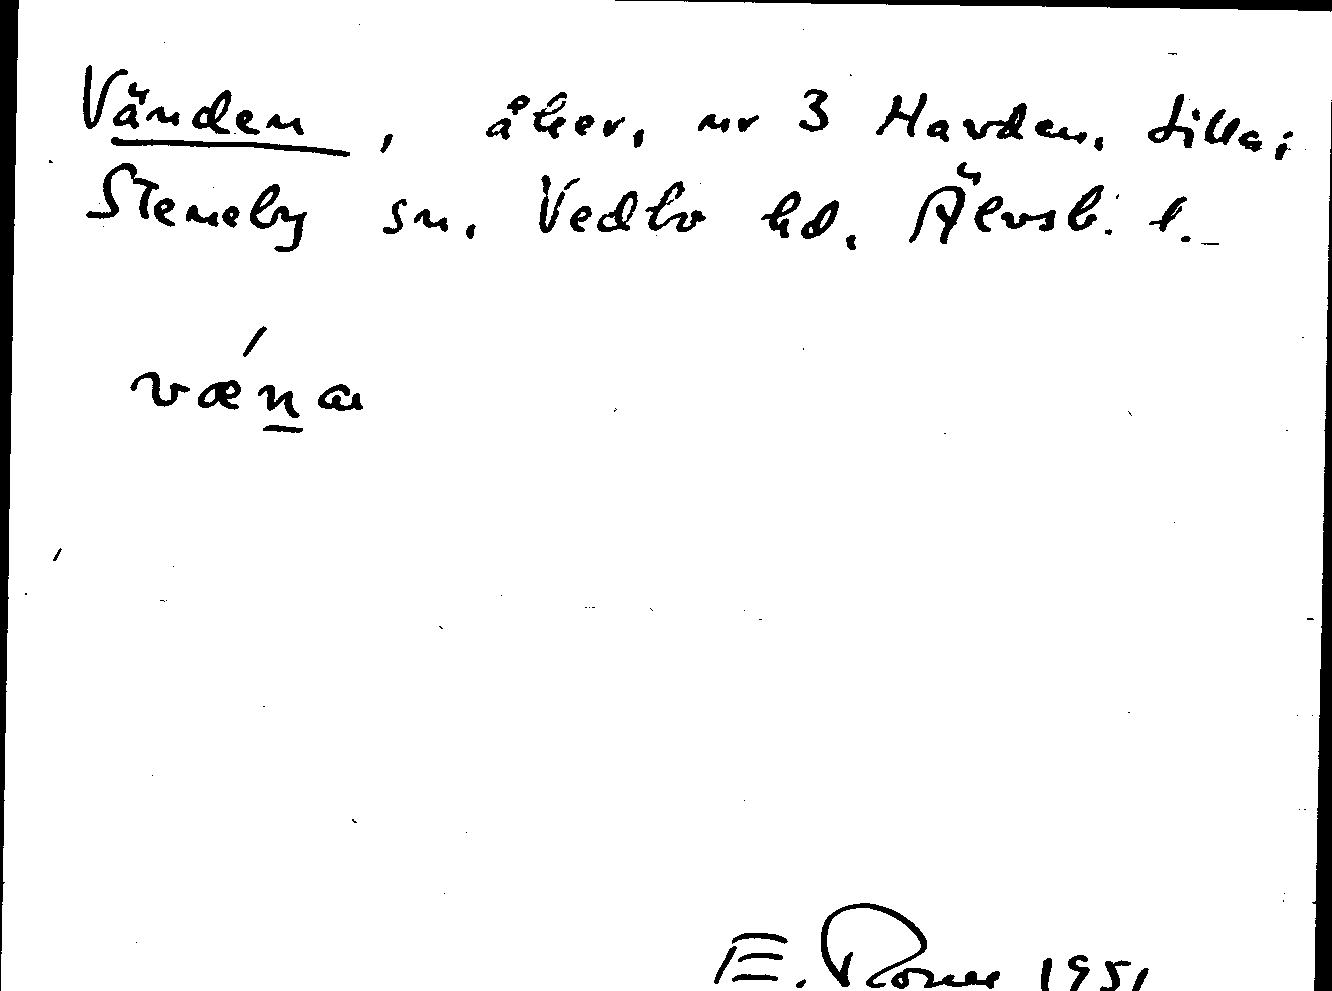 Vänden, åker, nr 3 Havden, Lilla;
Steneby sn. Vedbo hd. Älvsb. l.
væ´na
E. Rosne 1951